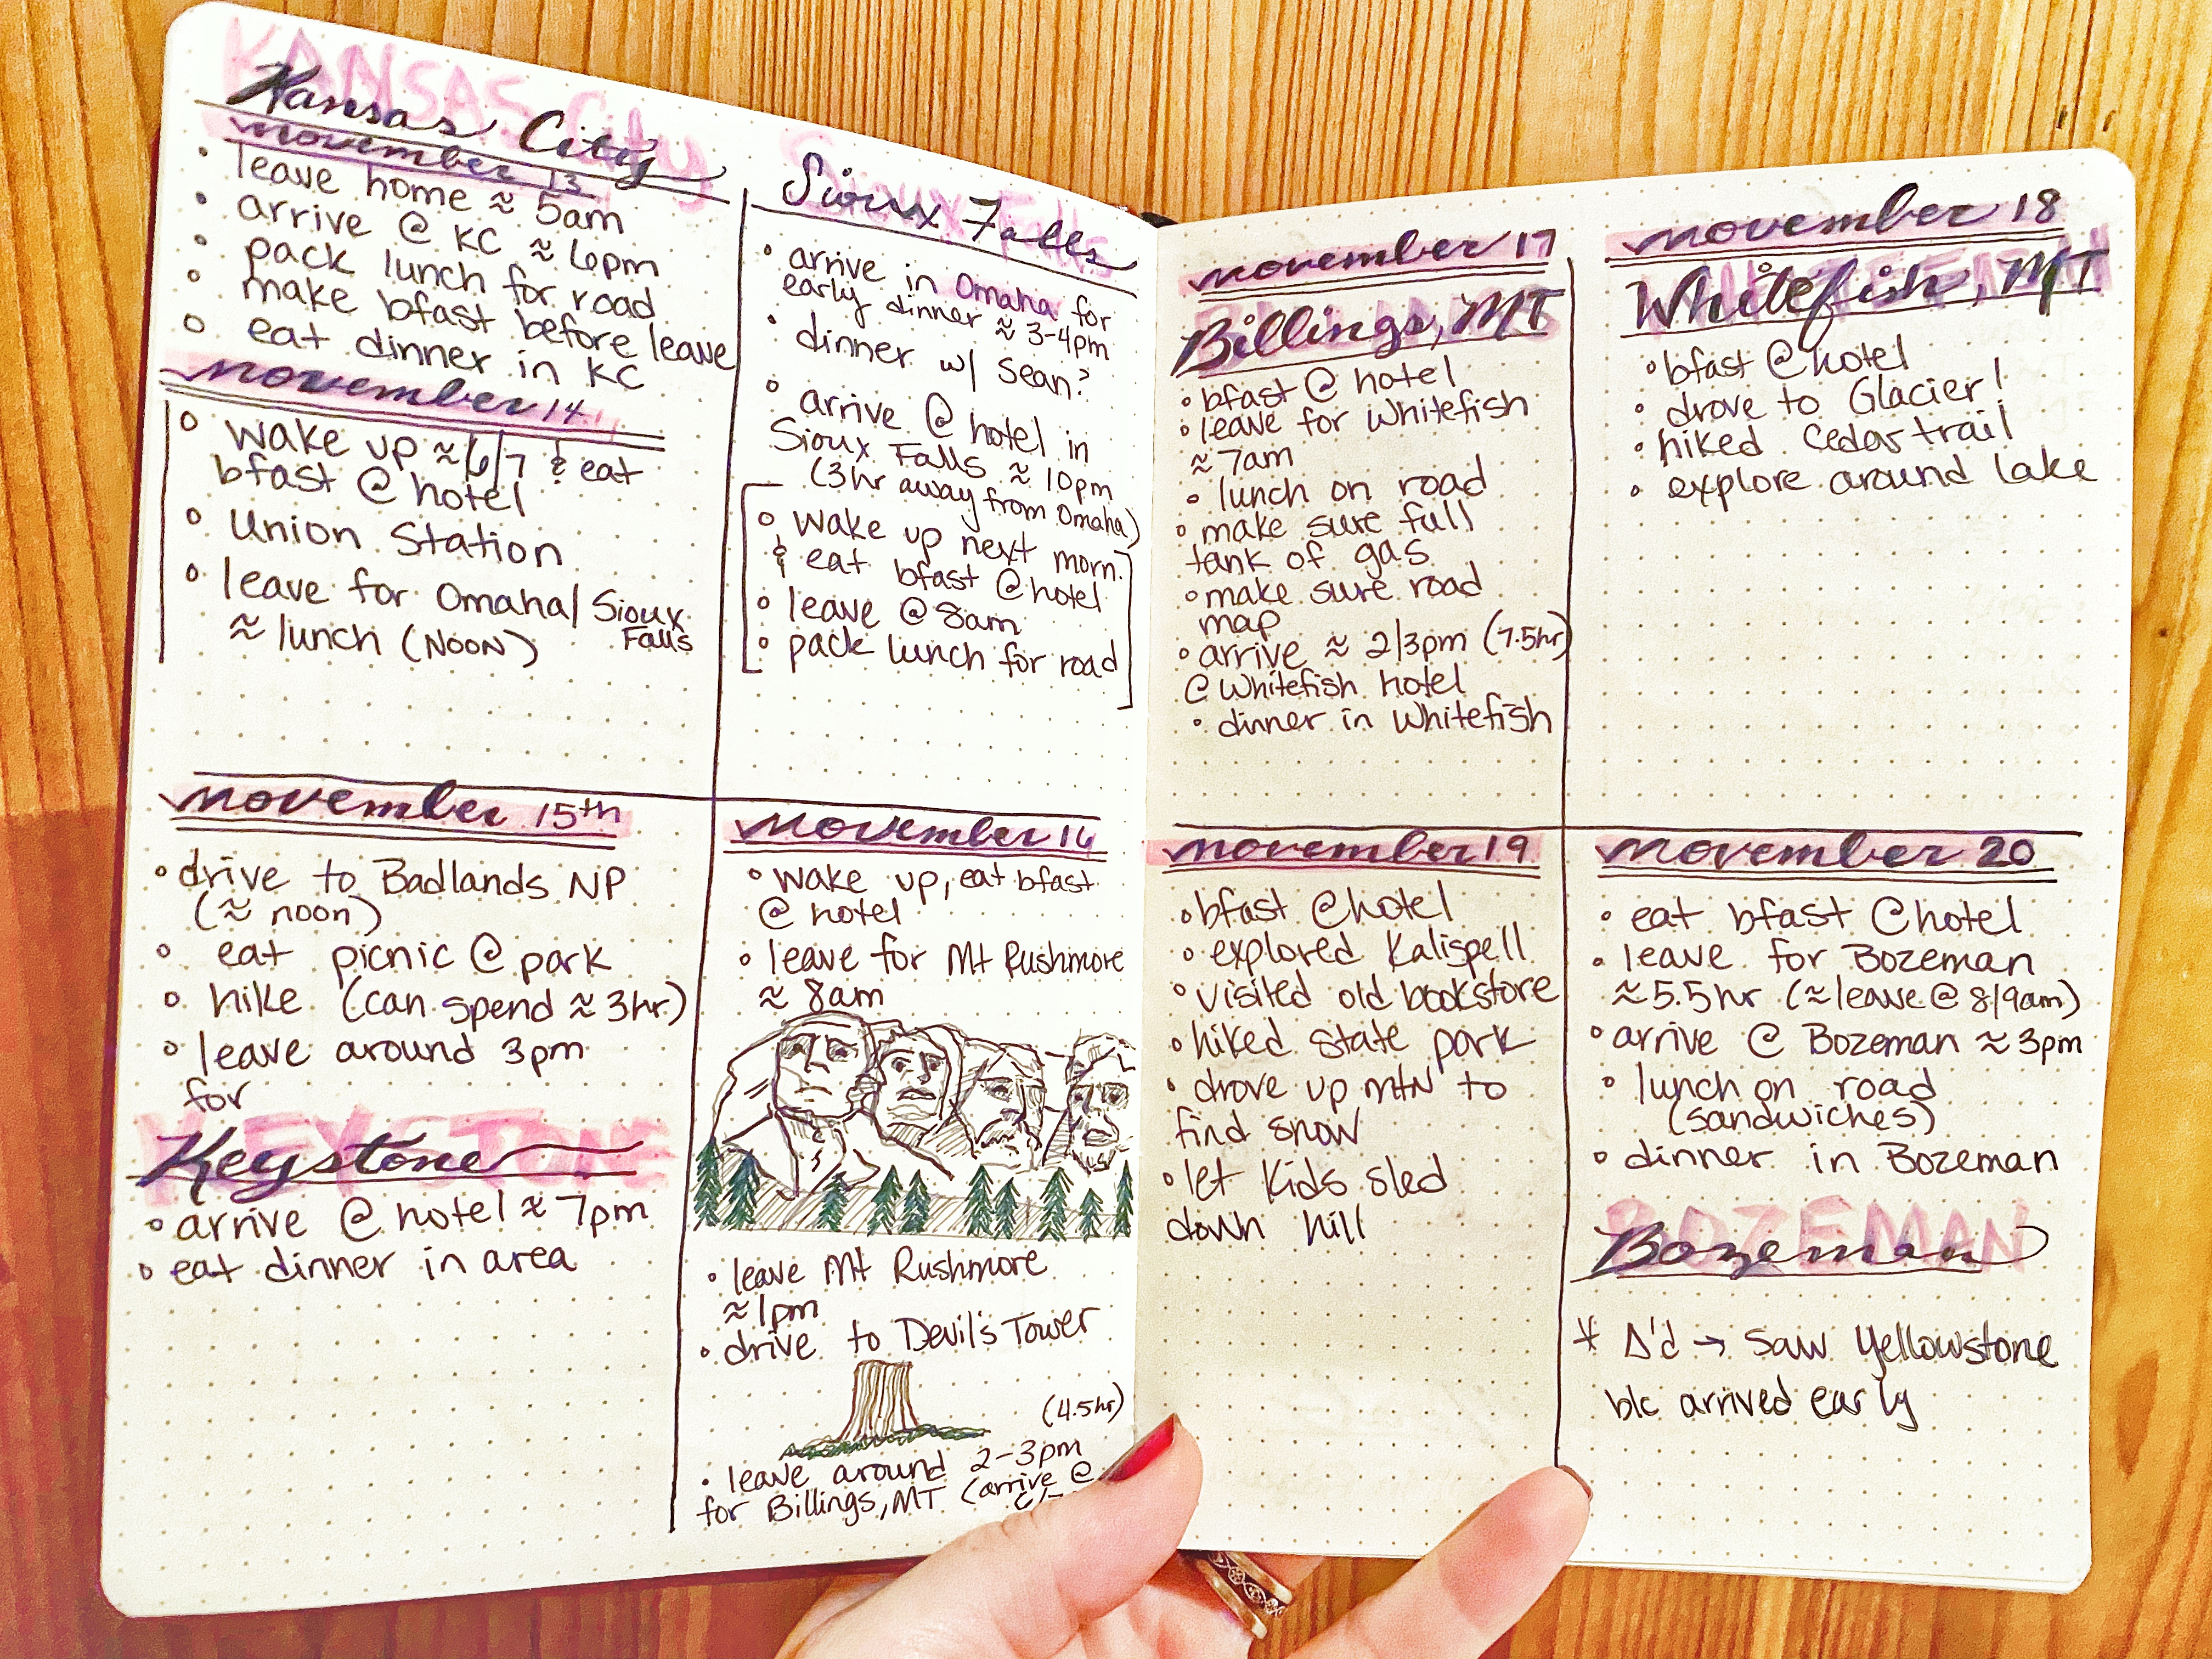 Kansas City
november 13
• leave home ≈ 5am
• arrive @ KC ≈ 6pm
• pack lunch for road
• make bfast before leave
• eat dinner in KC
november 14
• wake up ≈ 6/7 & eat
bfast @ hotel
• Union Station
• leave for Omaha/Sioux
Falls
≈ lunch (NOON)
Sioux Falls
• arrive in Omaha for
early dinner ≈ 3-4pm
• dinner w/ Sean?
• arrive @ hotel in
Sioux Falls ≈ 10pm
(3hr away from Omaha)
• wake up next morn.
& eat bfast @ hotel
• leave @ 8am
• pack lunch for road
november 15th
• drive to Badlands NP
(≈ noon)
• eat picnic @ park
• hike (can spend ≈ 3hr)
• leave around 3pm
for
KEYSTONE
Keystone
• arrive @ hotel ≈ 7pm
• eat dinner in area
november 16
• wake up, eat bfast
@ hotel
• leave for Mt Rushmore
≈ 8am
• leave Mt Rushmore
≈ 1pm
• drive to Devil's Tower
(4.5hr)
• leave around 2-3pm
for Billings, MT (arrive @
november 17
Billings, MT
• bfast @ hotel
• leave for Whitefish
≈ 7am
• lunch on road
• make sure full
tank of gas
• make sure road
map
• arrive ≈ 2/3pm (7.5hr)
@ Whitefish hotel
• dinner in Whitefish
november 18
Whitefish, MT
• bfast @ hotel
• drove to Glacier!
• hiked Cedar trail
• explore around lake
november 19
• bfast @ hotel
• explored Kalispell
• visited old bookstore
• hiked state park
• drove up mtn to
find snow
• let kids sled
down hill
november 20
• eat bfast @ hotel
• leave for Bozeman
≈ 5.5hr (≈ leave @ 8/9am)
• arrive @ Bozeman ≈ 3pm
• lunch on road
(sandwiches)
• dinner in Bozeman
BOZEMAN
Bozeman
* Δ'd → saw Yellowstone
b/c arrived early